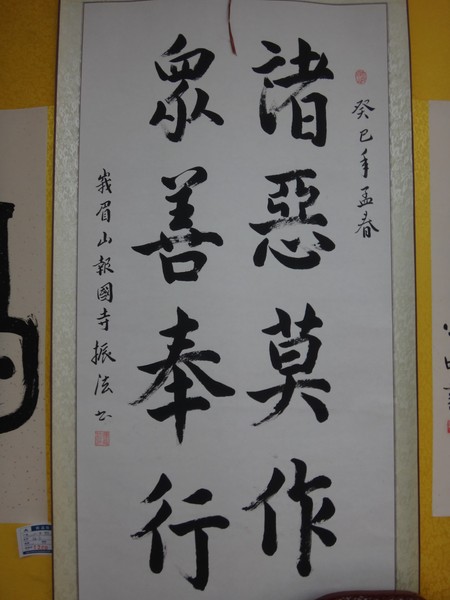 癸巳年孟春
諸惡莫作
眾善奉行
峩眉山報國寺振法書